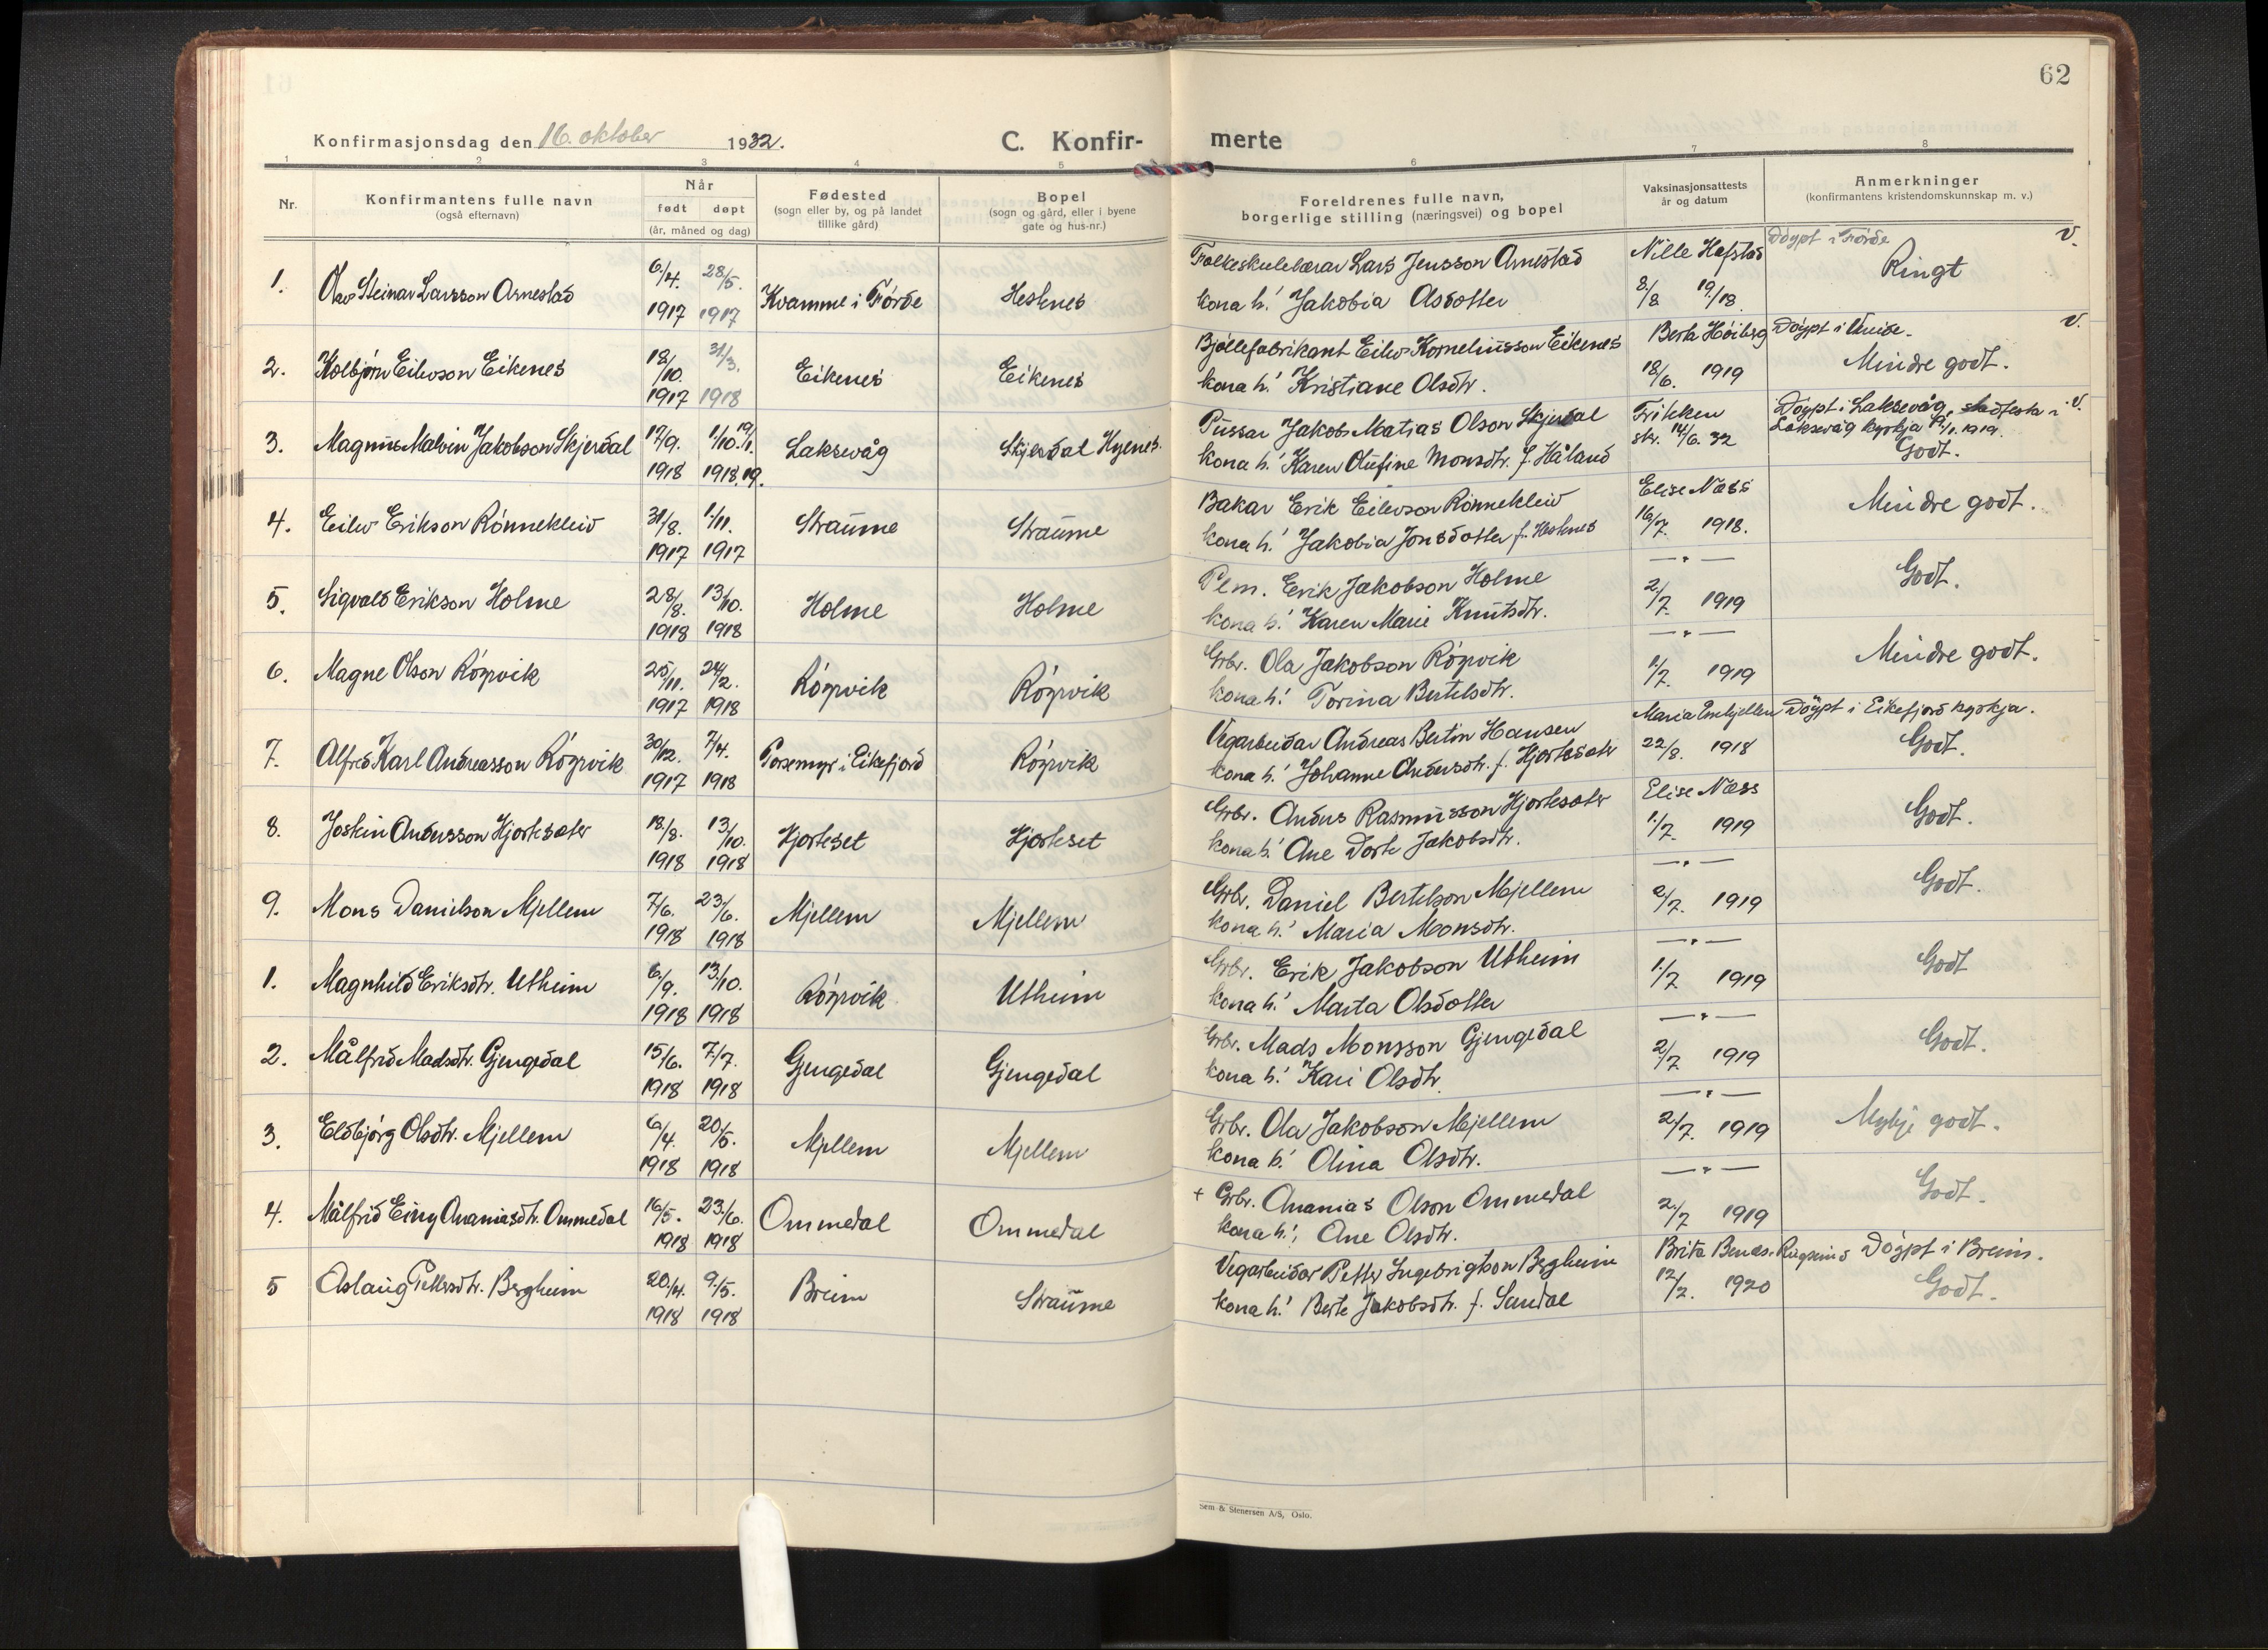 62
Konfirmasjonsdag den 16. oktober 1932.
C. Konfir-
merte
1 2 3 4 5 6 7 8
Nr.
Konfirmantens fulle navn
(også efternavn)
Når
født døpt
(år, måned og dag)
Fødested
(sogn eller by, og på landet
tillike gård)
Bopel
(sogn og gård, eller i byene
gate og hus-nr.)
Foreldrenes fulle navn,
borgerlige stilling (næringsvei) og bopel
Vaksinasjonsattests
år og datum
Anmerkninger
(konfirmantens kristendomskunnskap m. v.)
1. Olav Steinar Larsson Arnestad 6/4. 1917 28/5. 1917 Kvamme i Førde Hesknes
Folkeskulelærar Lars Jensson Arnestad Nille Hafstad Døypt i Førde V.
kona h.' Jakobia Asdotter 8/8 19/18. Ringt
2. Kolbjørn Eilevson Eikenes 18/10. 1917 31/3. 1918 Eikenes Eikenes
Bjøllefabrikant Eilev Korneliusson Eikenes Berta Høiberg Døypt i V.
kona h.' Kristiane Olsdtr. 18/6. 1919 Mindre godt.
3. Magnus Malvin Jakobson Skjerdal 17/9. 1918 1/10. 19/1. 1918.19. Laksevåg Skjerdal Hyenes.
Pussar Jakob Matias Olson Skjerdal Frikken Døypt i Laksevåg, stadfesta i V.
kona h.' Karen Olufine Monsdtr. f. Håland skr. 14/6. 32 Laksevåg kyrkja 19/1. 1919.
Godt.
4. Eilev Erikson Rønnekleiv 31/8. 1917 1/11. 1917 Straume Straume
Bakar Erik Eilevson Rønnekleiv Elise Næss Mindre godt.
kona h.' Jakobia Jonsdotter f. Hesknes 16/7. 1918.
5. Sigvald Erikson Holme 28/8. 1918 13/10. 1918 Holme Holme
Plm. Erik Jakobson Holme — " — Godt.
kona h.' Karen Marie Knutsdtr. 2/7. 1919
6. Magne Olson Røyrvik 25/11. 1917 24/2. 1918 Røyrvik Røyrvik
Grbr. Ola Jakobson Røyrvik — " — Mindre godt.
kona h.' Torina Bertelsdtr. 1/7. 1919
7. Alfred Karl Andreasson Røyrvik 30/12. 1917 7/4. 1918 Porsemyr i Eikefjord Røyrvik
Vegarbeidar Andreas Bertin Hansen Maria Døypt i Eikefjord kyrkja.
kona h.' Johanne Andersdtr. f. Hjortesæter 22/8. 1918 Godt.
8. Jostein Andersson Hjortesæter 18/8. 1918 13/10. 1918 Hjorteset Hjorteset
Grbr. Anders Rasmusson Hjortesæter Elise Næss Godt.
kona h.' Ane Dorte Jakobsdtr. 1/7. 1919
9. Mons Danielson Mjellem 7/6. 1918 23/6. 1918 Mjellem Mjellem
Grbr. Daniel Bertelson Mjellem — " — Godt.
kona h.' Maria Monsdtr. 2/7. 1919
1. Magnhild Eriksdtr. Utheim 6/9. 1918 13/10. 1918 Røyrvik Utheim
Grbr. Erik Jakobson Utheim — " — Godt
kona h.' Marta Olsdotter 1/7 1919
2. Målfrid Madsdtr. Gjengedal 15/6. 1918 7/7. 1918 Gjengedal Gjengedal
Grbr. Mads Monsson Gjengedal — " — Godt.
kona h.' Kari Olsdtr. 2/7 1919
3. Eldbjørg Olsdtr. Mjellem 6/4. 1918 20/5. 1918 Mjellem Mjellem
Grbr. Ola Jakobson Mjellem — " — Mykje godt.
kona h.' Olina Olsdtr. 2/7. 1919
4. Målfrid Einy Ananiasdtr. Ommedal 16/5. 1918 23/6. 1918 Ommedal Ommedal
+ Grbr. Ananias Olson Ommedal — " — Godt.
kona h.', Ane Olsdtr. 2/7 1919
5 Aslaug Pettersdtr. Bergheim 20/4. 1918 9/5. 1918 Breim Straume
Vegarbeidar Petter Ingebrigtson Bergheim Brita Døypt i Breim.
kona h.' Berte Jakobsdtr. f. Sandal 12/2. 1920 Godt.
Sem & Stenersen A/S, Oslo.